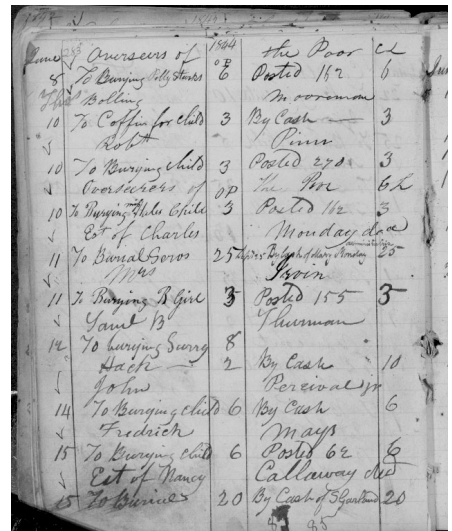 1844
June 283 Overseers of the Poor Cd
8 To Burying Polly Starks 6 Posted 162 6
Thos Bolling Mooreman
10 To Coffin for child 3 By Cash 3
Robt Pinn
10 To Burying child 3 Posted 270 3
Overseerers of the Poor
10 To Burying Child 3 Posted 162 3
Est of Charles Monday
11 To Burial 25 By Cash of Mary Monday 25
Mrs Irvin
11 To Burying Girl 3 Posted 155 3
Saml B Thurman
12 To burying 8
Hack 2 By Cash 10
John Percival jr
14 To Burying child 6 By Cash 6
Fredrich Mays
15 To Burying child 6 Posted 62 6
Est of Nancy Callaway decd
15 To Buriel 20 By Cash of S Garland 20
85